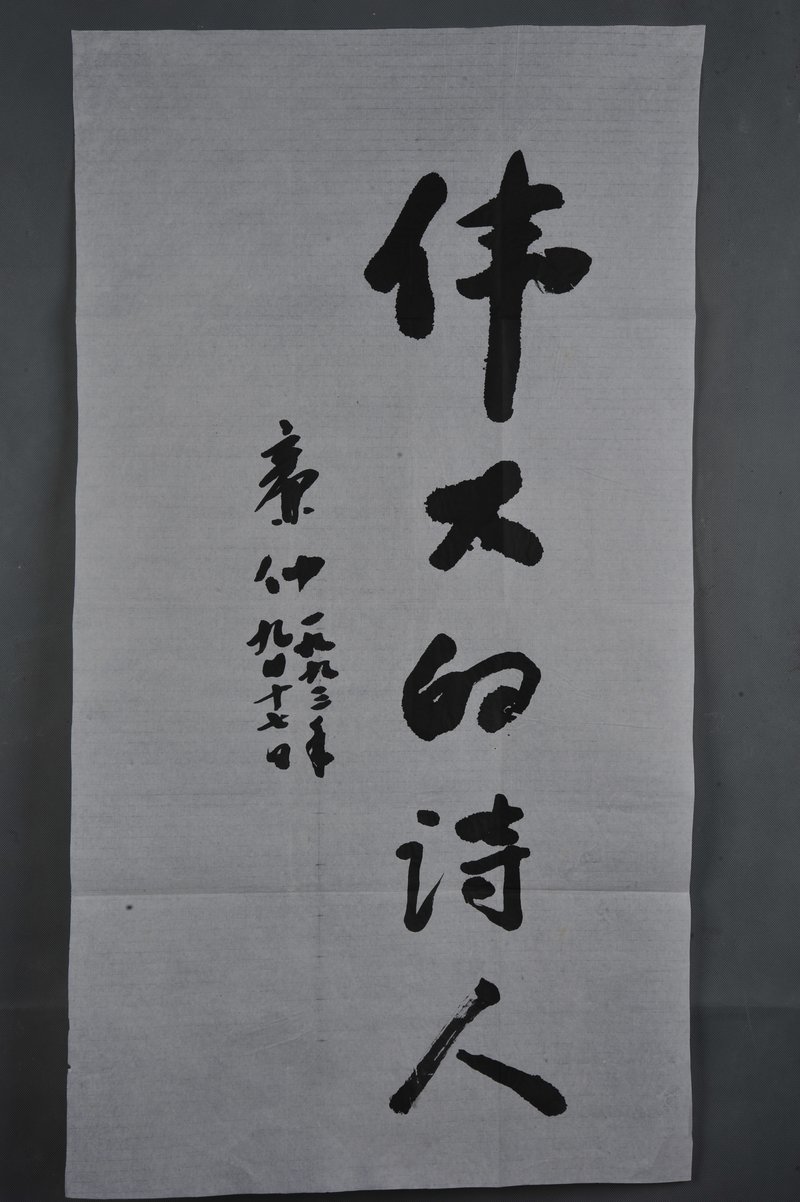 伟大的诗人
廉仲
一九九三年
九月十七日